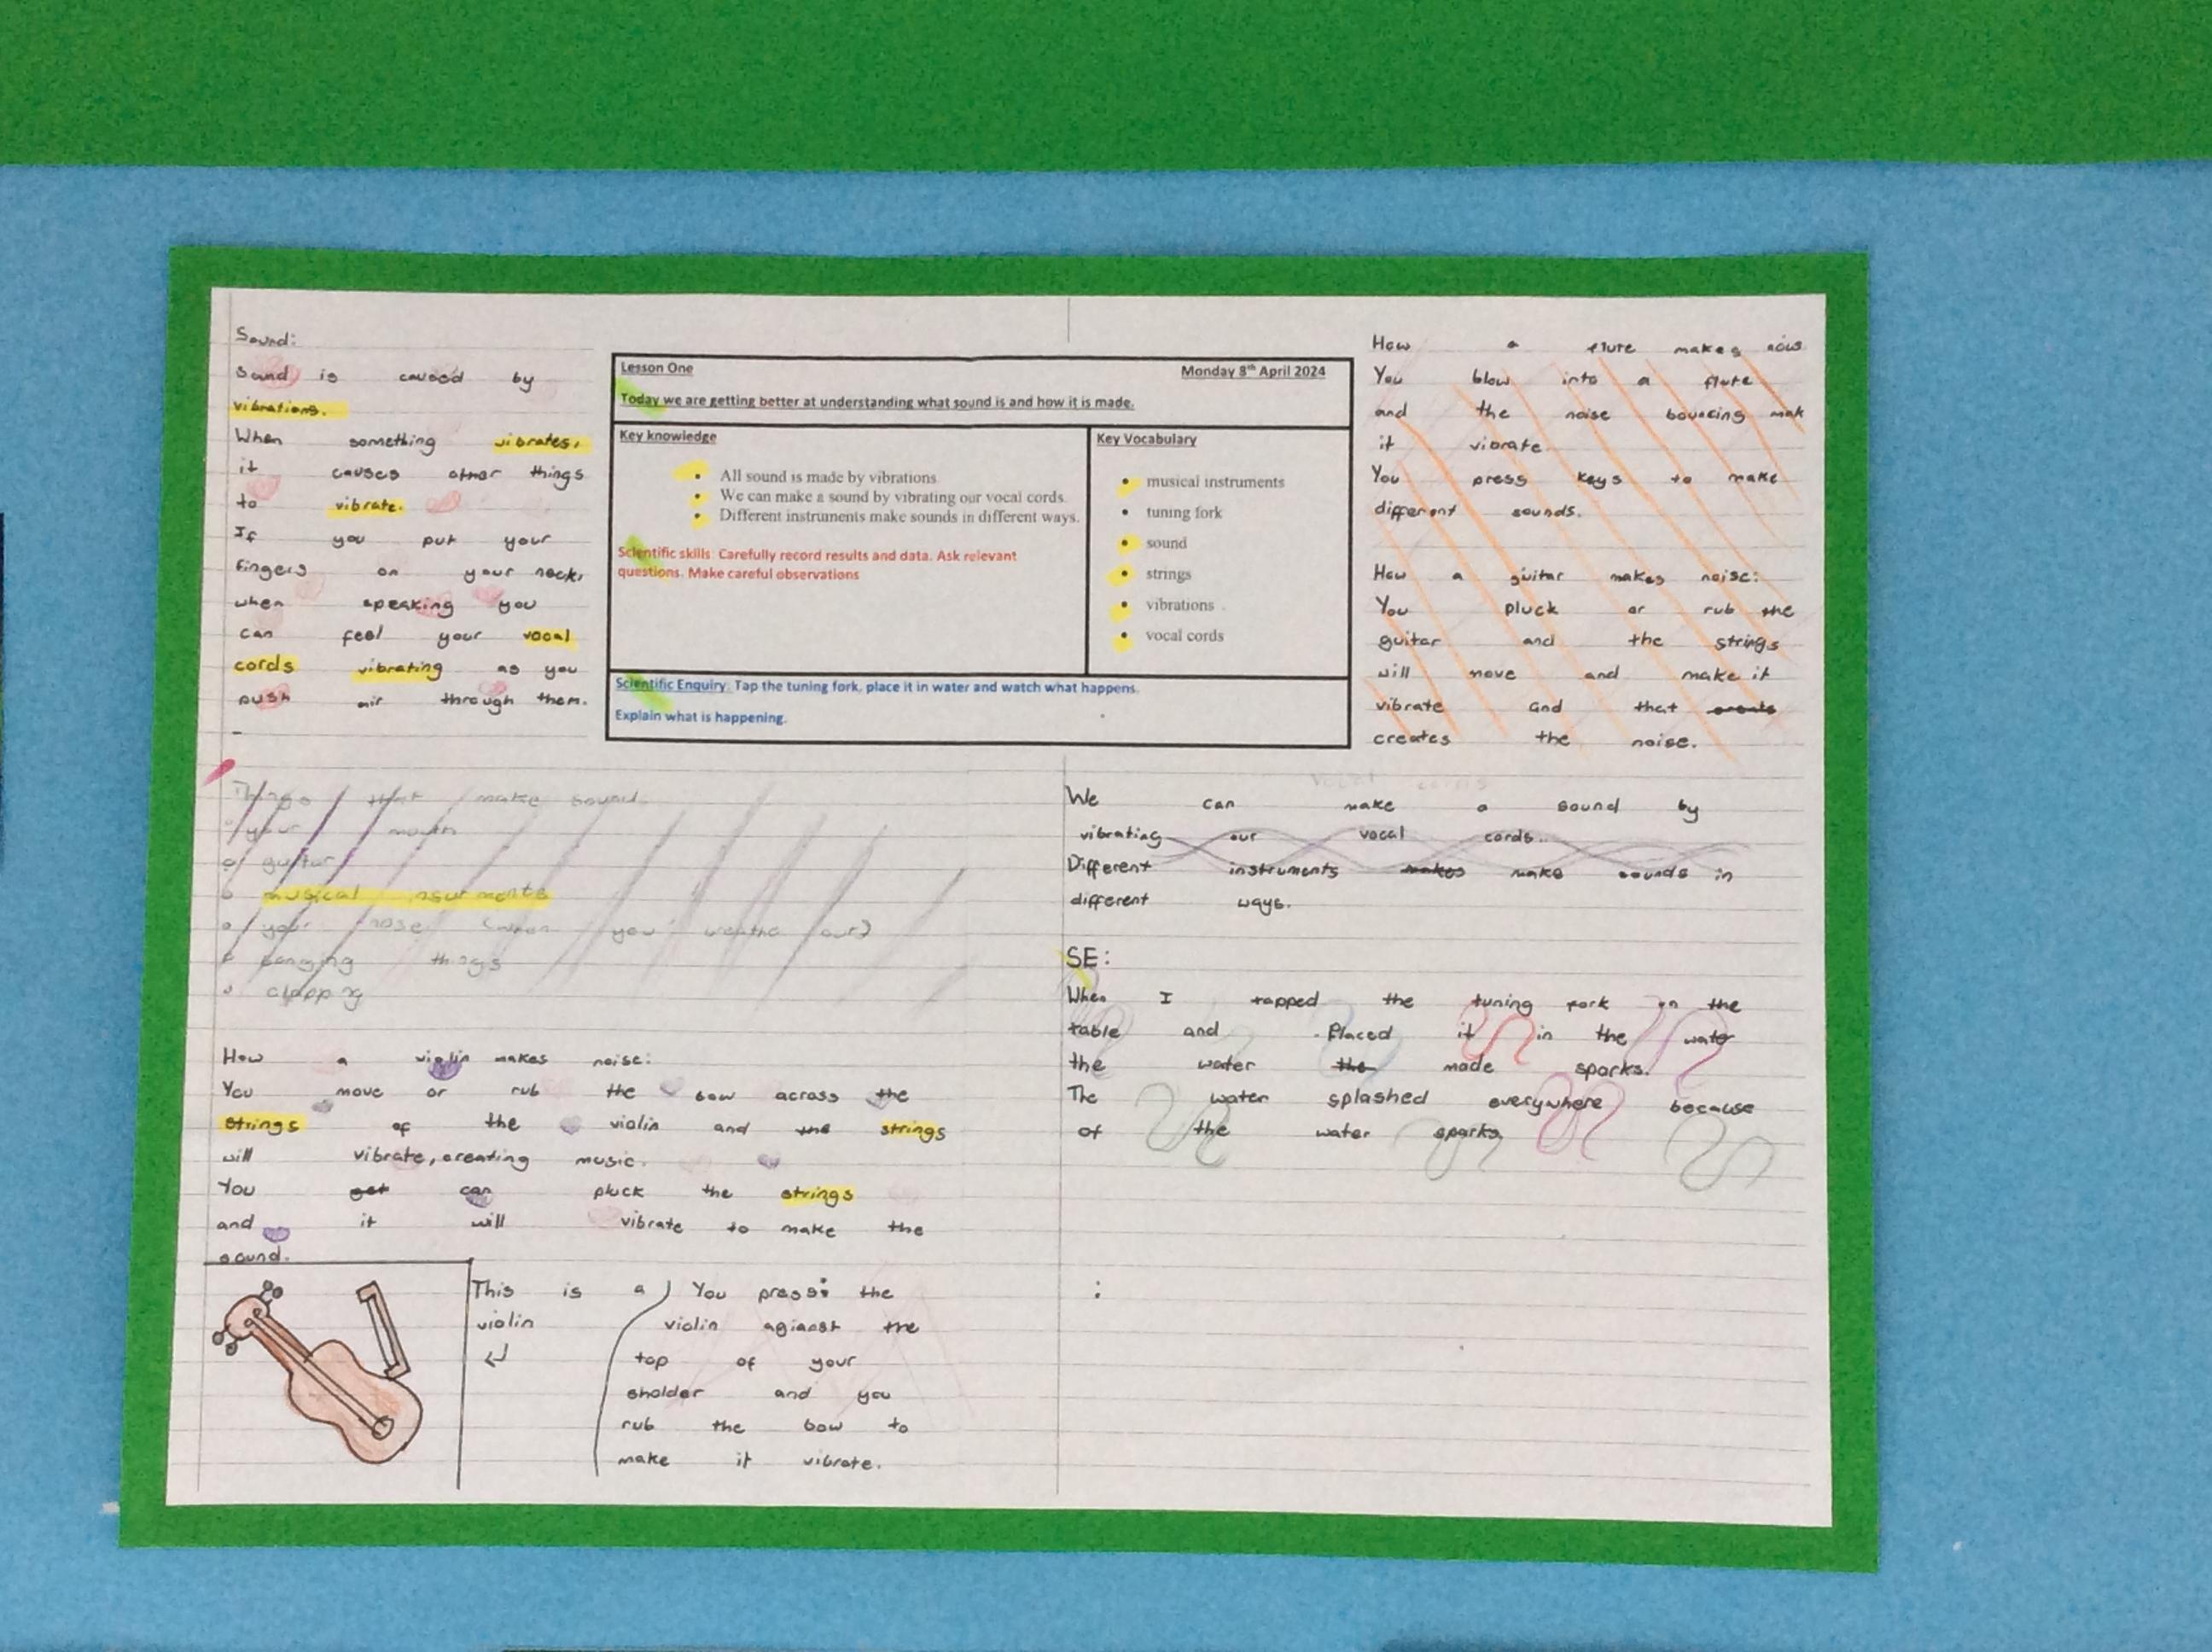 Sound:
Sound is caused by
vibrations.
When something vibrates,
it causes other things
to vibrate.
If you put your
fingers on your neck,
when speaking you
can feel your vocal
cords vibrating as you
push air through them.
Lesson One Monday 8th April 2024
Today we are getting better at understanding what sound is and how it is made.
Key knowledge
• All sound is made by vibrations
• We can make a sound by vibrating our vocal cords.
• Different instruments make sounds in different ways.
Scientific skills: Carefully record results and data. Ask relevant
questions. Make careful observations
Key Vocabulary
• musical instruments
• tuning fork
• sound
• strings
• vibrations
• vocal cords
Scientific Enquiry: Tap the tuning fork, place it in water and watch what happens.
Explain what is happening.
How a flute makes nois
You blow into a flute
and the noise bouncing mak
it vibrate.
You press keys to make
different sounds.
How a guitar makes noise:
You pluck or rub the
guitar and the strings
will move and make it
vibrate and that
creates the noise.
Things that make sound
your mouth
guitar
musical
your nose (when you out)
banging things
clapping
How a violin makes noise:
You move or rub the bow across the
strings of the violin and the strings
will vibrate, creating music.
You get can pluck the strings
and it will vibrate to make the
sound.
This is a
violin
You press the
violin agianst the
top of your
sholder and you
rub the bow to
make it vibrate.
We can make a sound by
vibrating our vocal cords.
Different instruments makes make sounds in
different ways.
SE:
When I tapped the tuning fork on the
table and Placed it in the water
the water the made sparks.
The water splashed everywhere because
of the water sparks,